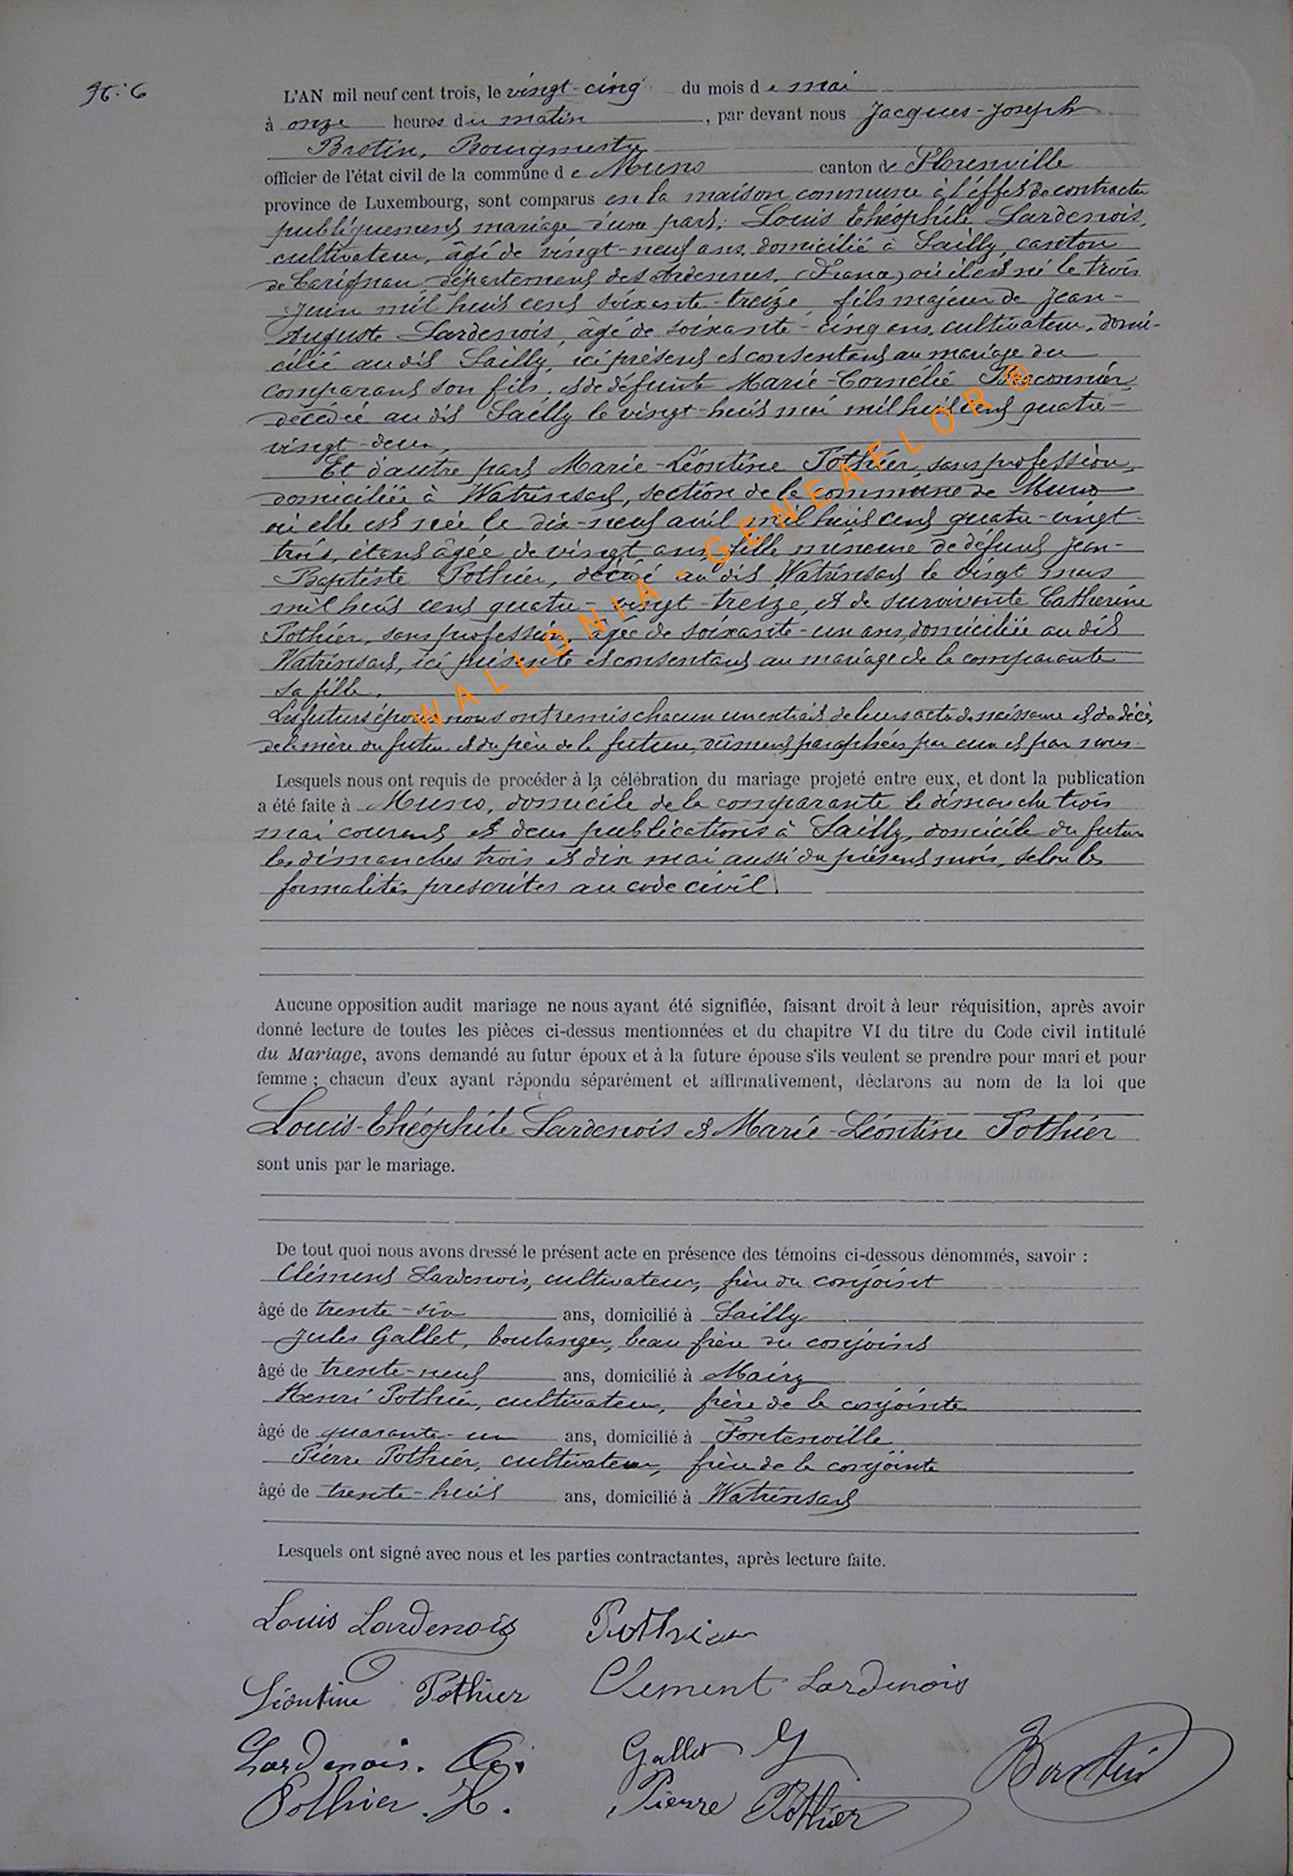 N: 6
L'AN mil neuf cent trois, le vingt-cinq du mois de mai
à onze heures du matin, par devant nous Jacques-Joseph
Brotin, Bourgmestre
officier de l'état civil de la commune de Muno canton de Florenville
province de Luxembourg, sont comparus en la maison commune à l'effet de contracter
publiquement mariage d'une part, Louis Théophile Lardenois,
cultivateur, âgé de vingt-neuf ans, domicilié à Sailly, canton
de Carignan département des Ardennes, (France) où il est né le trois
juin mil huit cent soixante-treize, fils majeur de Jean-
Auguste Lardenois, âgé de soixante-cinq ans, cultivateur, domi-
cilié au dit Sailly, ici présent et consentant au mariage du
comparant son fils, et de défunte Marie-Cornélie
décédée au dit Sailly le vingt-huit mai mil huit cent quatre-
vingt-deux,
Et d'autre part Marie-Léontine Pothier, sans profession,
domiciliée à Watrinsart, section de la commune de Muno
où elle est née le dix-neuf avril mil huit cent quatre-vingt-
trois, étant âgée de vingt ans, fille mineure de défunt Jean-
Baptiste Pothier, décédé au dit Watrinsart le vingt mars
mil huit cent quatre-vingt-treize, et de survivante Catherine
Pothier, sans profession, âgée de soixante-un ans, domiciliée au dit
Watrinsart, ici présente et consentant au mariage de la comparante
sa fille.
Les futurs époux nous ont remis chacun un extrait de leurs acte de naissance et de décès,
de la mère du futur et du père de la future, dûment paraphées par eux et par nous.
Lesquels nous ont requis de procéder à la célébration du mariage projeté entre eux, et dont la publication
a été faite à Muno, domicile de la comparante le dimanche trois
mai courant et deux publications à Sailly, domicile du futur
les dimanches trois et dix mai aussi du présent mois, selon les
formalités prescrites au code civil.
Aucune opposition audit mariage ne nous ayant été signifiée, faisant droit à leur réquisition, après avoir
donné lecture de toutes les pièces ci-dessus mentionnées et du chapitre VI du titre du Code civil intitulé
du Mariage, avons demandé au futur époux et à la future épouse s'ils veulent se prendre pour mari et pour
femme ; chacun d'eux ayant répondu séparément et affirmativement, déclarons au nom de la loi que
Louis-Théophile Lardenois et Marie-Léontine Pothier
sont unis par le mariage.
De tout quoi nous avons dressé le présent acte en présence des témoins ci-dessous dénommés, savoir :
Clément Lardenois, cultivateur, frère du conjoint
âgé de trente-six ans, domicilié à Sailly
Jules Gallet, boulanger, beau frère du conjoint
âgé de trente-neuf ans, domicilié à Mairy
Henri Pothier, cultivateur, frère de la conjointe
âgé de quarante-un ans, domicilié à Fontenoille
Pierre Pothier, cultivateur, frère de la conjointe
âgé de trente-huit ans, domicilié à Watrinsart
Lesquels ont signé avec nous et les parties contractantes, après lecture faite.
Louis Lardenois Pothier
Léontine Pothier Clement Lardenois
Lardenois. A. Gallet J
Pothier. H. Pierre Pothier Brotin
WALLONIA - GENEAFLOR ®